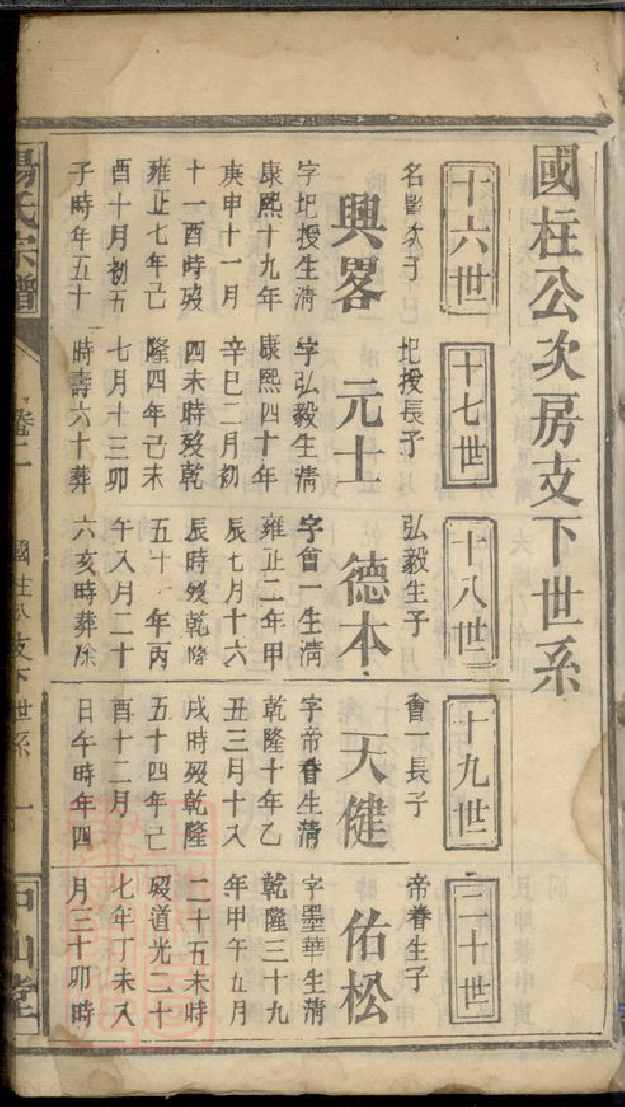 國柱公次房支下世系
十六世
名 次子
興畧
字圯授生清
康熙十九年
庚申十一月
十一酉時歿
雍正七年己
酉十月初五
子時年五十
十七世
圯授長子
元士
字弘毅生清
康熙四十年
辛巳二月初
四未時歿乾
隆四年己未
七月十三卯
時壽六十葬
十八世
弘毅生子
德本
字會一生清
雍正二年甲
辰七月十六
辰時歿乾隆
五十 年丙
午八月二十
六亥時葬除
十九世
會一長子
天健
字帝眷生清
乾隆十年乙
丑三月十八
戌時歿乾隆
五十四年己
酉十二月
日午時年四
二十世
帝眷生子
佑松
字墨華生清
乾隆三十九
年甲午五月
二十五未時
歿道光二十
七年丁未八
月三十卯時
楊氏宗譜
卷二
國柱公支下世系
一
山堂